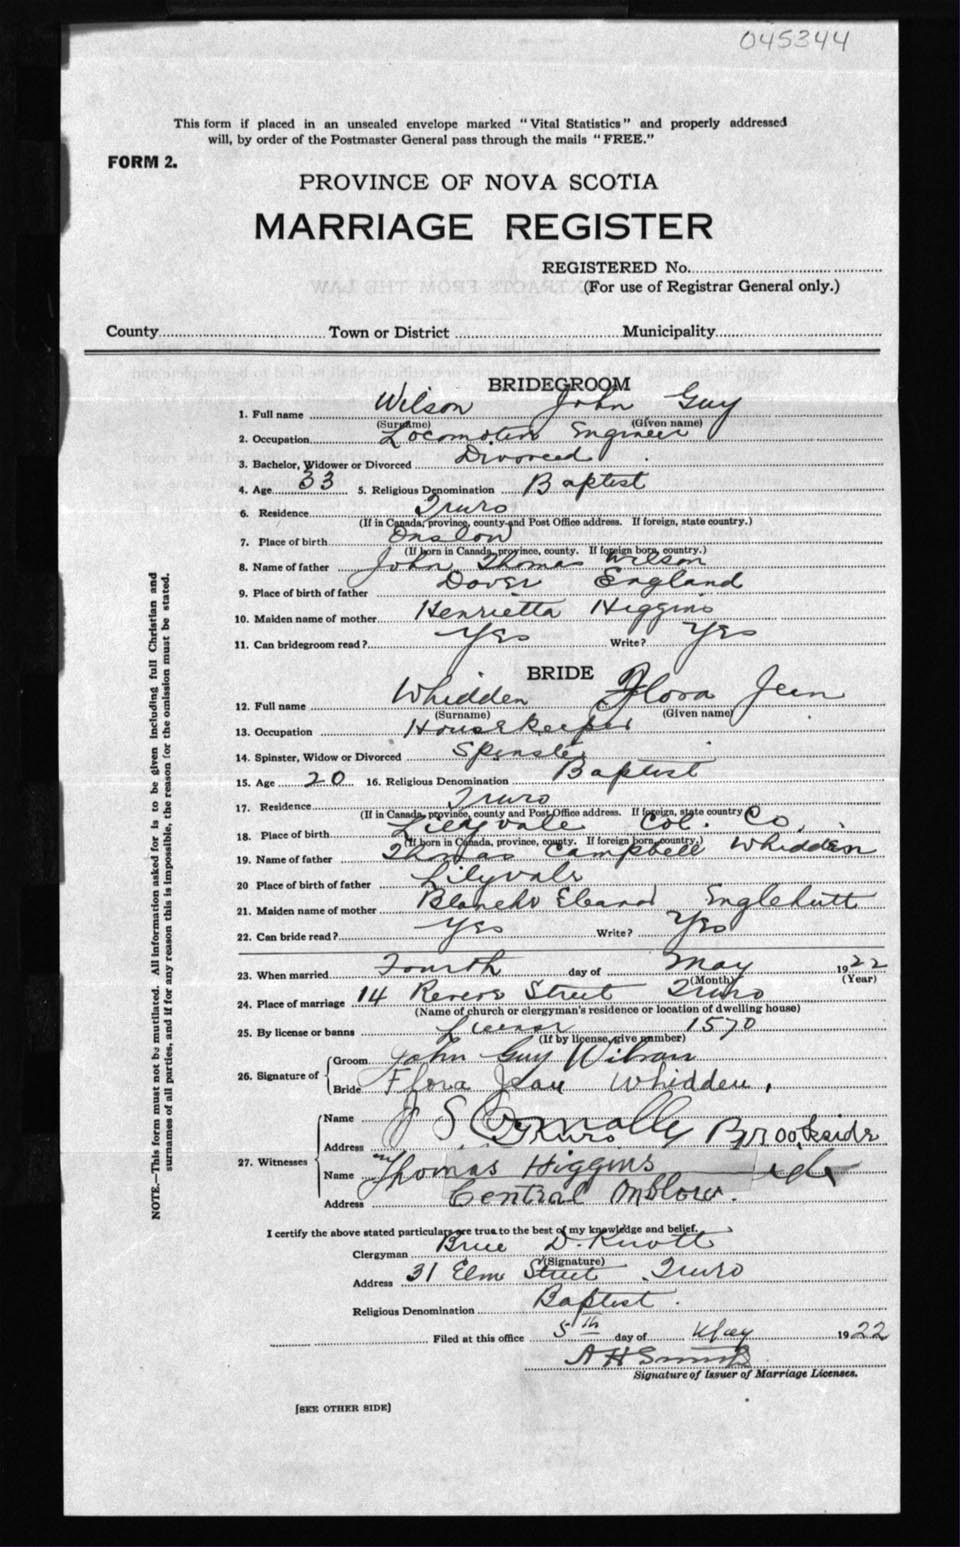 045344
This form if placed in an unsealed envelope marked "Vital Statistics" and properly addressed
will, by order of the Postmaster General pass through the mails "FREE."
FORM 2.
PROVINCE OF NOVA SCOTIA
MARRIAGE REGISTER
REGISTERED No.
(For use of Registrar General only.)
County Town or District Municipality
BRIDEGROOM
1. Full name Wilson John Guy
(Surname) (Given name)
2. Occupation Locomotive Engineer
3. Bachelor, Widower or Divorced Divorced
4. Age 33 5. Religious Denomination Baptist
6. Residence Truro
(If in Canada, province, county and Post Office address. If foreign, state country.)
7. Place of birth Onslow
(If born in Canada, province, county. If foreign born, country.)
8. Name of father John Thomas Wilson
9. Place of birth of father Dover England
10. Maiden name of mother Henrietta Higgins
11. Can bridegroom read? Yes Write? Yes
BRIDE
12. Full name Whidden Flora Jean
(Surname) (Given name)
13. Occupation Housekeeper
14. Spinster, Widow or Divorced Spinster
15. Age 20 16. Religious Denomination Baptist
17. Residence Truro
(If in Canada, province, county and Post Office address. If foreign, state country)
18. Place of birth Lilyvale Col. Co.
(If born in Canada, province, county. If foreign born, country.)
19. Name of father Thomas Campbell Whidden
20 Place of birth of father Lilyvale
21. Maiden name of mother Blanche Eleanor Englehutt
22. Can bride read? Yes Write? Yes
23. When married Fourth day of May 1922
(Month) (Year)
24. Place of marriage 14 Revere Street Truro
(Name of church or clergyman's residence or location of dwelling house)
25. By license or banns License 1570
(If by license, give number)
26. Signature of Groom John Guy Wilson
Bride Flora Jean Whidden
27. Witnesses Name J S Connolly
Address Truro Brookside
Name Thomas Higgins
Address Central Onslow.
I certify the above stated particulars are true to the best of my knowledge and belief.
Clergyman D. Knott
(Signature)
Address 31 Elm Street Truro
Religious Denomination Baptist.
Filed at this office 5th day of May 1922
A H Smith
Signature of Issuer of Marriage Licenses.
[SEE OTHER SIDE]
NOTE.—This form must not be mutilated. All information asked for is to be given including full Christian and
surnames of all parties, and if for any reason this is impossible, the reason for the omission must be stated.